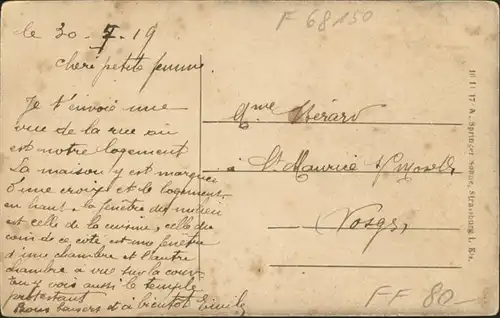 F 68150
le 30-7-19
cheri petite femme
Je t'envoie une
vue de la rue où
est notre logement
La maison y est marquée
d'une croix et de logement
en haut. la fenêtre du milieu
est celle de la cuisine, celle du
coin de ce coté est une fenêtre
d'une chambre et l'autre
chambre a vue sur la cour
tu y vois aussi le temple
protestant
Bons baisers et à bientôt Emile
Mme Mérard
à St Maurice s/ Moselle
Vosges
FF 80
A. Springer Söhne, Strassburg i. Els.